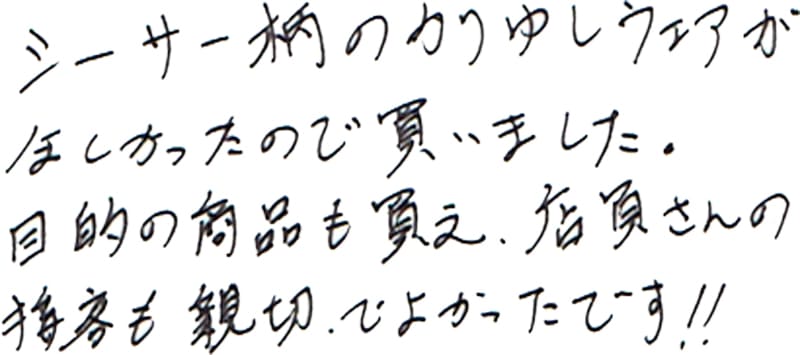 シーサー柄のかりゆしウェアが
ほしかったので買いました。
目的の商品も買え、店員さんの
接客も親切でよかったです!!